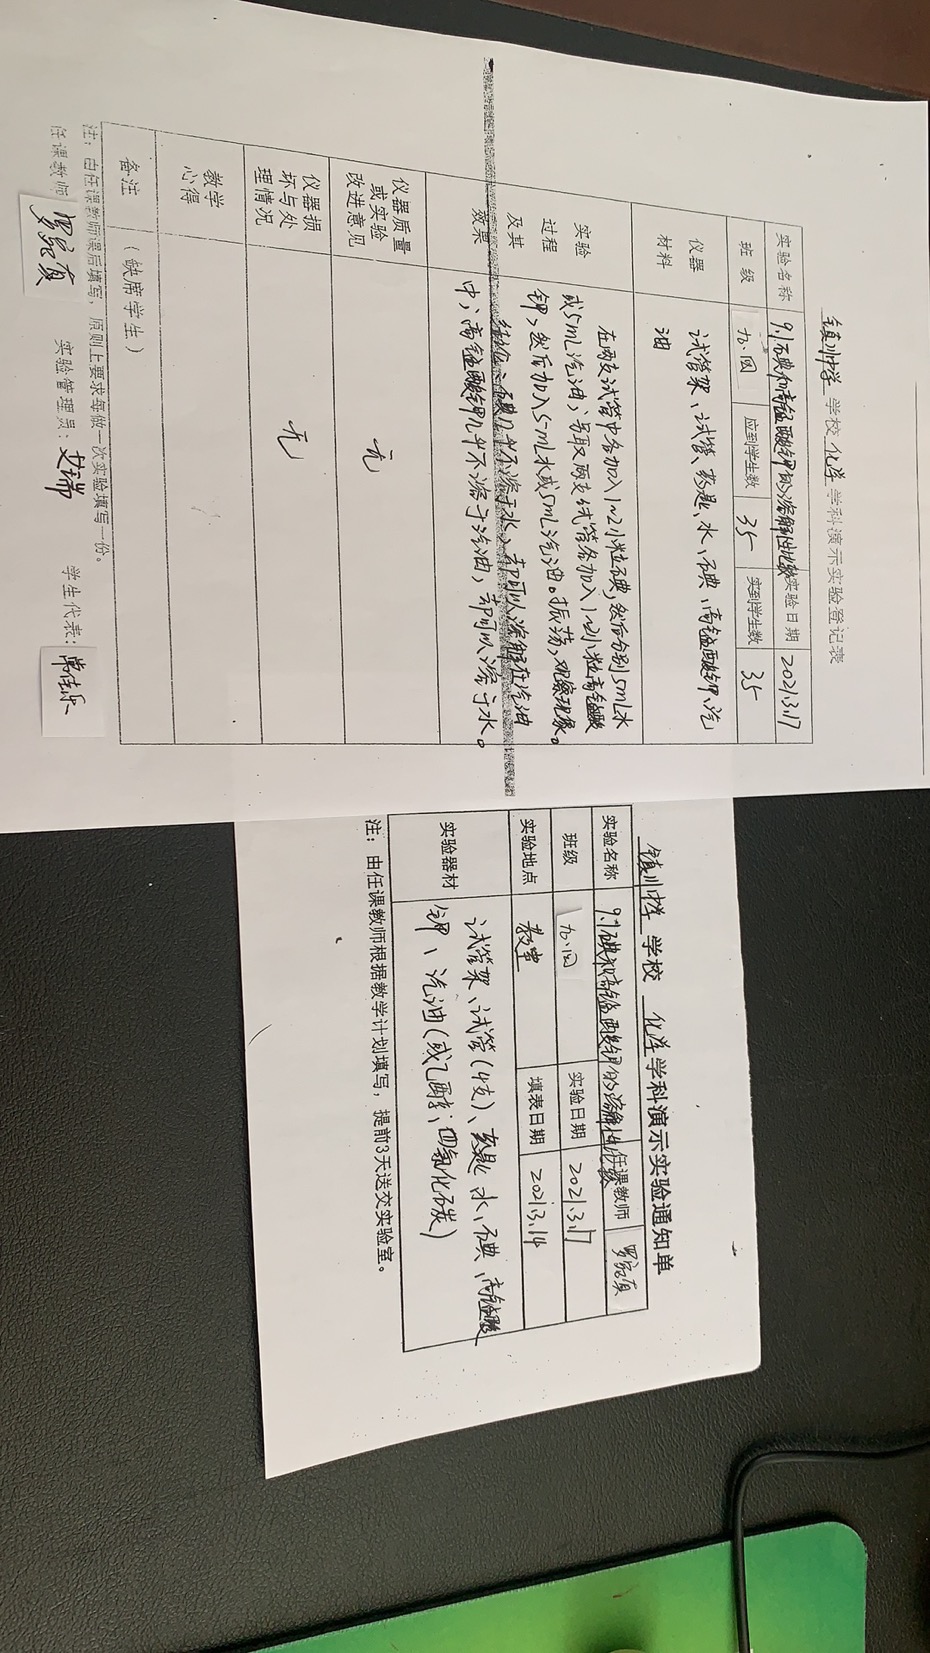 镇川中学 学校 化学 学科演示实验登记表
实验名称 9.1石碘和高锰酸钾的溶解性比较 实验日期 2021.3.17
班级 九.四 应到学生数 35 实到学生数 35
仪器材料
试管架、试管、药匙、水、石典、高锰酸钾、汽
油
实验过程及其效果
在两支试管中各加入1~2小粒石碘,然后分别5mL水
或5mL汽油;另取两支试管各加入1~2小粒高锰酸
钾,然后加入5mL水或5mL汽油。振荡,观察现象。
结论:碘几乎不溶于水,却可以溶解在汽油
中;高锰酸钾几乎不溶于汽油,却可以溶于水。
仪器质量或实验改进意见 无
仪器损坏与处理情况 无
教学心得
备注 (缺席学生)
注:由任课教师课后填写,原则上要求每做一次实验填写一份。
任课教师 实验管理员: 学生代表: 常佳乐
镇川中学 学校 化学 学科演示实验通知单
实验名称 9.1石碘和高锰酸钾的溶解性比较 任课教师
班级 九.四 实验日期 2021.3.17
实验地点 教室 填表日期 2021.3.14
实验器材
试管架、试管(4支)、药匙、水、石典、高锰酸
钾、汽油(或乙醇;四氯化石炭)
注:由任课教师根据教学计划填写,提前3天送交实验室。